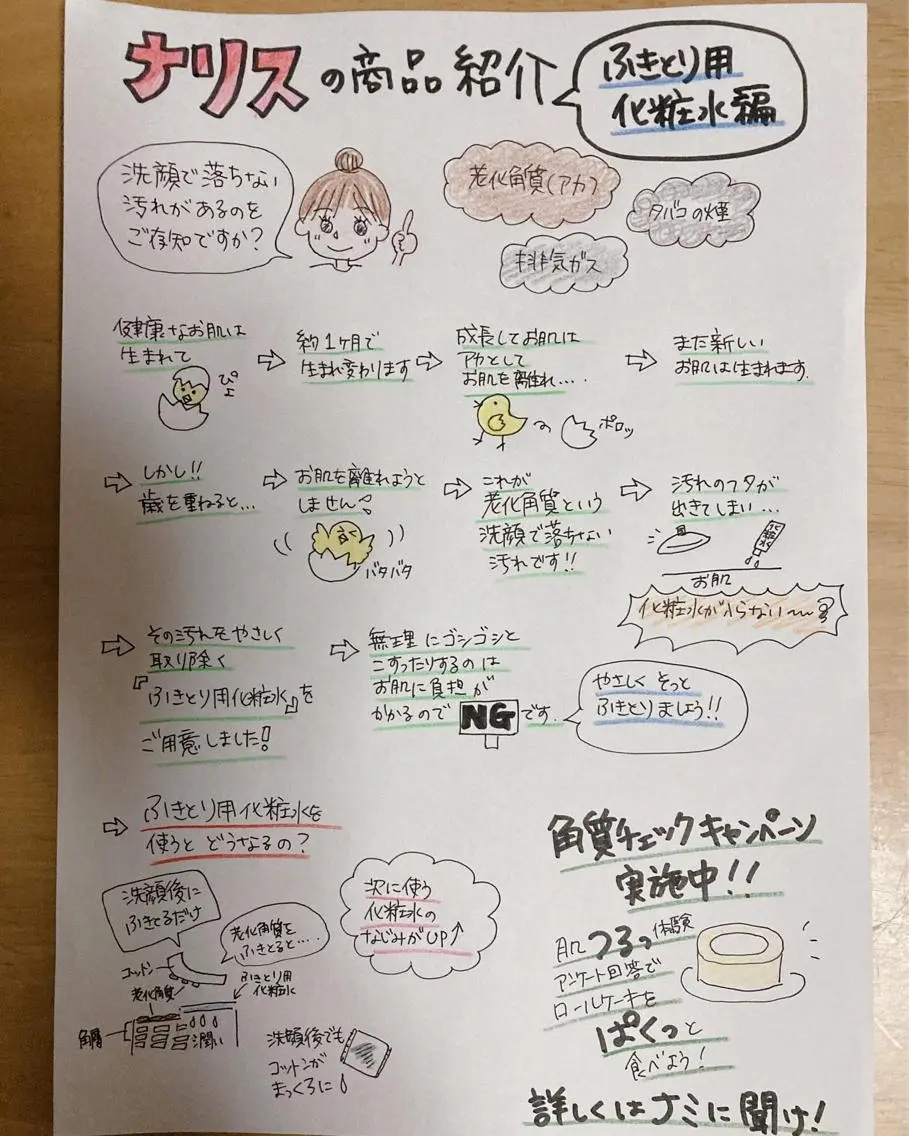 ナリスの商品紹介
ふきとり用
化粧水編
洗顔で落ちない
汚れがあるのを
ご存知ですか?
老化角質(アカ)
タバコの煙
排気ガス
健康なお肌は
生まれて
ぴよ
約1ヶ月で
生まれ変わります
成長してお肌は
アカとして
お肌を離れ….
ポロッ
また新しい
お肌は生まれます.
しかし!!
歳を重ねると…
お肌を離れようと
しません
バタバタ
これが
老化角質という
洗顔で落ちない
汚れです!!
汚れのフタが
出きてしまい…
化粧水
お肌
化粧水が入らない〜〜
その汚れをやさしく
取り除く
『ふきとり用化粧水』を
ご用意しました!
無理にゴシゴシと
こすったりするのは
お肌に負担が
かかるので NG です.
やさしく そっと
ふきとりましょう!!
ふきとり用化粧水を
使うと どうなるの?
洗顔後に
ふきとるだけ
老化角質を
ふきとると….
コットン
老化角質
ふきとり用
化粧水
角層
潤い
次に使う
化粧水の
なじみがUP↑
洗顔後でも
コットンが
まっくろに
角質チェックキャンペーン
実施中!!
肌つるっ体験
アンケート回答で
ロールケーキを
ぱくっと
食べよう!
詳しくはナミに聞け!